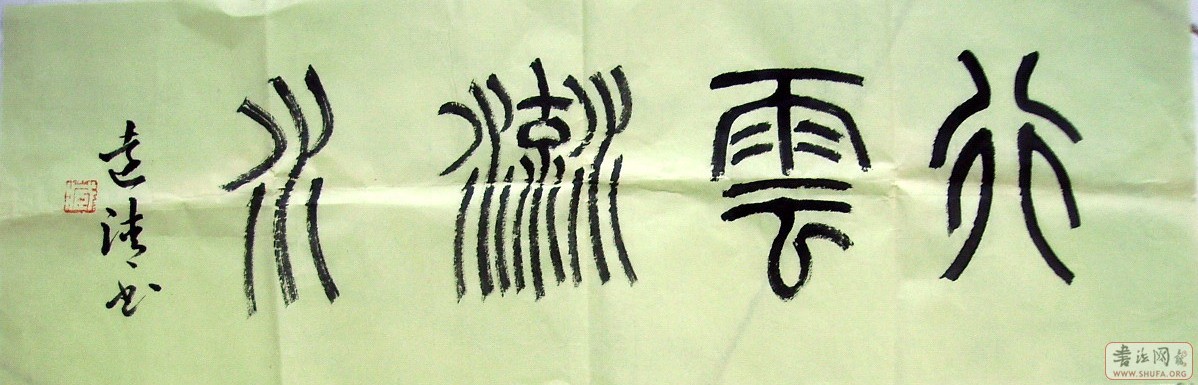 行雲流水
書法网
WWW.SHUFA.ORG